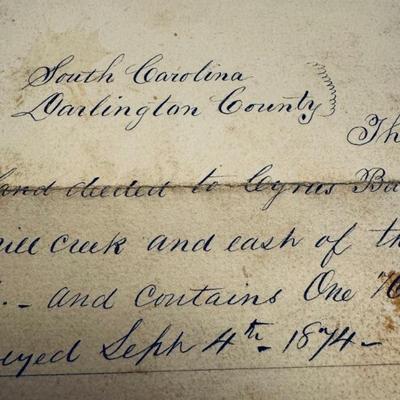 South Carolina
Darlington County
Th
land deeded to Cyrus Ba
ill creek and eash of th
. - and contains One
eyed Sept 4th - 1874 -